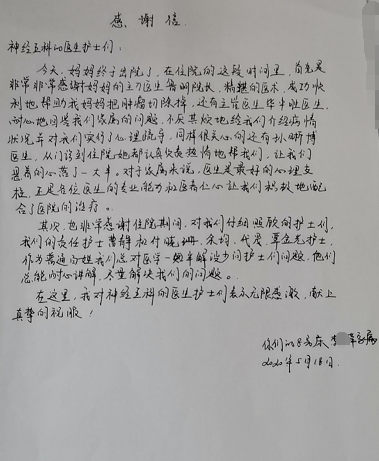 感谢信
神经五科的医生护士们：
今天，妈妈终于出院了，在住院的这段时间里，首先是
非常非常感谢妈妈的主刀医生 院长，精湛的医术，成功顺
利地帮助我妈妈把肿瘤切除掉，还有主管医生 医生，
耐心地回答我们家属的问题，不厌其烦地给我们介绍病情
状况并对我们实行了心理疏导，同样很关心的还有 晰博
医生，从门诊到住院她都认真负责热情地帮我们，让我们
悬着的心落了一大半，对于家属来说，医生是最好的心理支
柱，正是各位医生的专业能力和医者仁心让我们积极地配
合了医院的治疗。
其次，也非常感谢住院期间，对我们仔细照顾的护士们，
我们的责任护士黄静 护士，
作为普通的姐我们总对医学一知半解没少问护士们问题，他们
总能耐心讲解，尽量解决我们的问题。
在这里，我对神经五科的医生护士们表示无限感激，献上
真挚的祝服！
你们的 床 李 家属
2020年5月18日